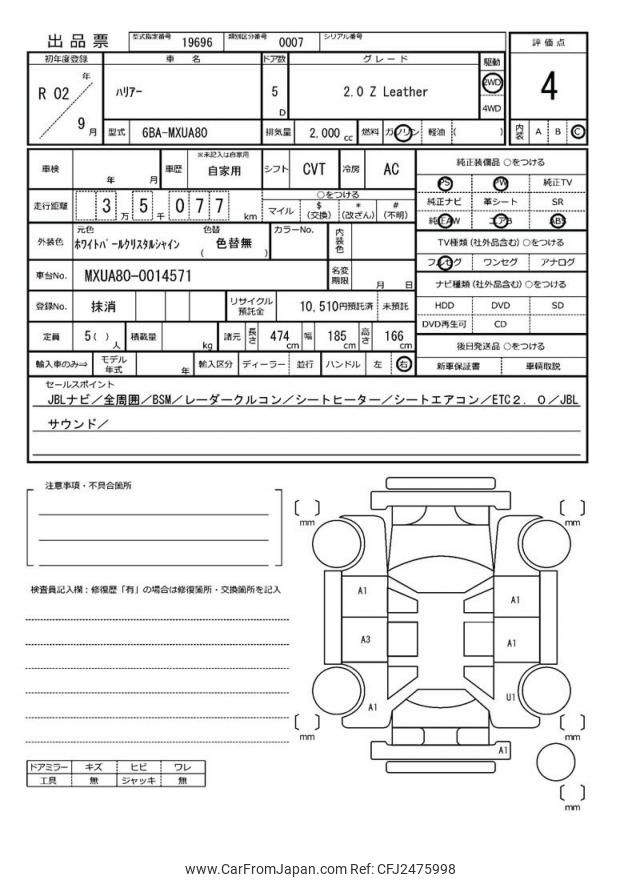 出品票 型式指定番号 19696 類別区分番号 0007 シリアル番号
初年度登録 車名 ドア数 グレード 駆動 評価点
R 02 年 9 月 ハリアー 5 D 2.0 Z Leather 2WD 4WD 4
型式 6BA-MXUA80 排気量 2,000 cc 燃料 ガソリン 軽油 ( ) 内装 A B C
車検 年 月 車歴 ※未記入は自家用 自家用 シフト CVT 冷房 AC 純正装備品 ○をつける
PS PW 純正TV
走行距離 3 万 5 千 0 7 7 km ○をつける 純正ナビ 革シート SR
マイル $ (交換) * (改ざん) # (不明) 純正AW エアB ABS
外装色 元色 ホワイトパールクリスタルシャイン 色替 ( 色替無 ) カラーNo. 内装色 TV種類 (社外品含む) ○をつける
フルセグ ワンセグ アナログ
車台No. MXUA80-0014571 名変期限 月 日 ナビ種類 (社外品含む) ○をつける
登録No. 抹消 リサイクル預託金 10,510円預託済 未預託 HDD DVD SD
DVD再生可 CD
定員 5( ) 人 積載量 kg 諸元 長さ 474 cm 幅 185 cm 高さ 166 cm 後日発送品 ○をつける
輸入車のみ⇒ モデル年式 年 輸入区分 ディーラー 並行 ハンドル 左 右 新車保証書 車輌取説
セールスポイント
JBLナビ/全周囲/BSM/レーダークルコン/シートヒーター/シートエアコン/ETC2.0/JBL
サウンド/
注意事項・不具合箇所
検査員記入欄:修復歴「有」の場合は修復箇所・交換箇所を記入
ドアミラー キズ ヒビ ワレ
工具 無 ジャッキ 無
mm mm
A1 A1
A3 A1
A1 U1
mm mm
A1
mm
www.CarFromJapan.com Ref: CFJ2475998